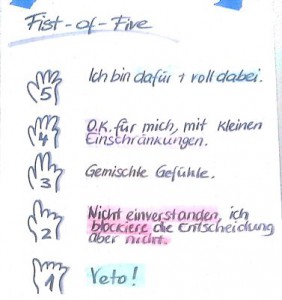 Fist-of-Five
5 Ich bin dafür + voll dabei.
4 O.K. für mich, mit kleinen
Einschränkungen.
3 Gemischte Gefühle.
2 Nicht einverstanden, ich
blockiere die Entscheidung
aber nicht.
1 Veto!